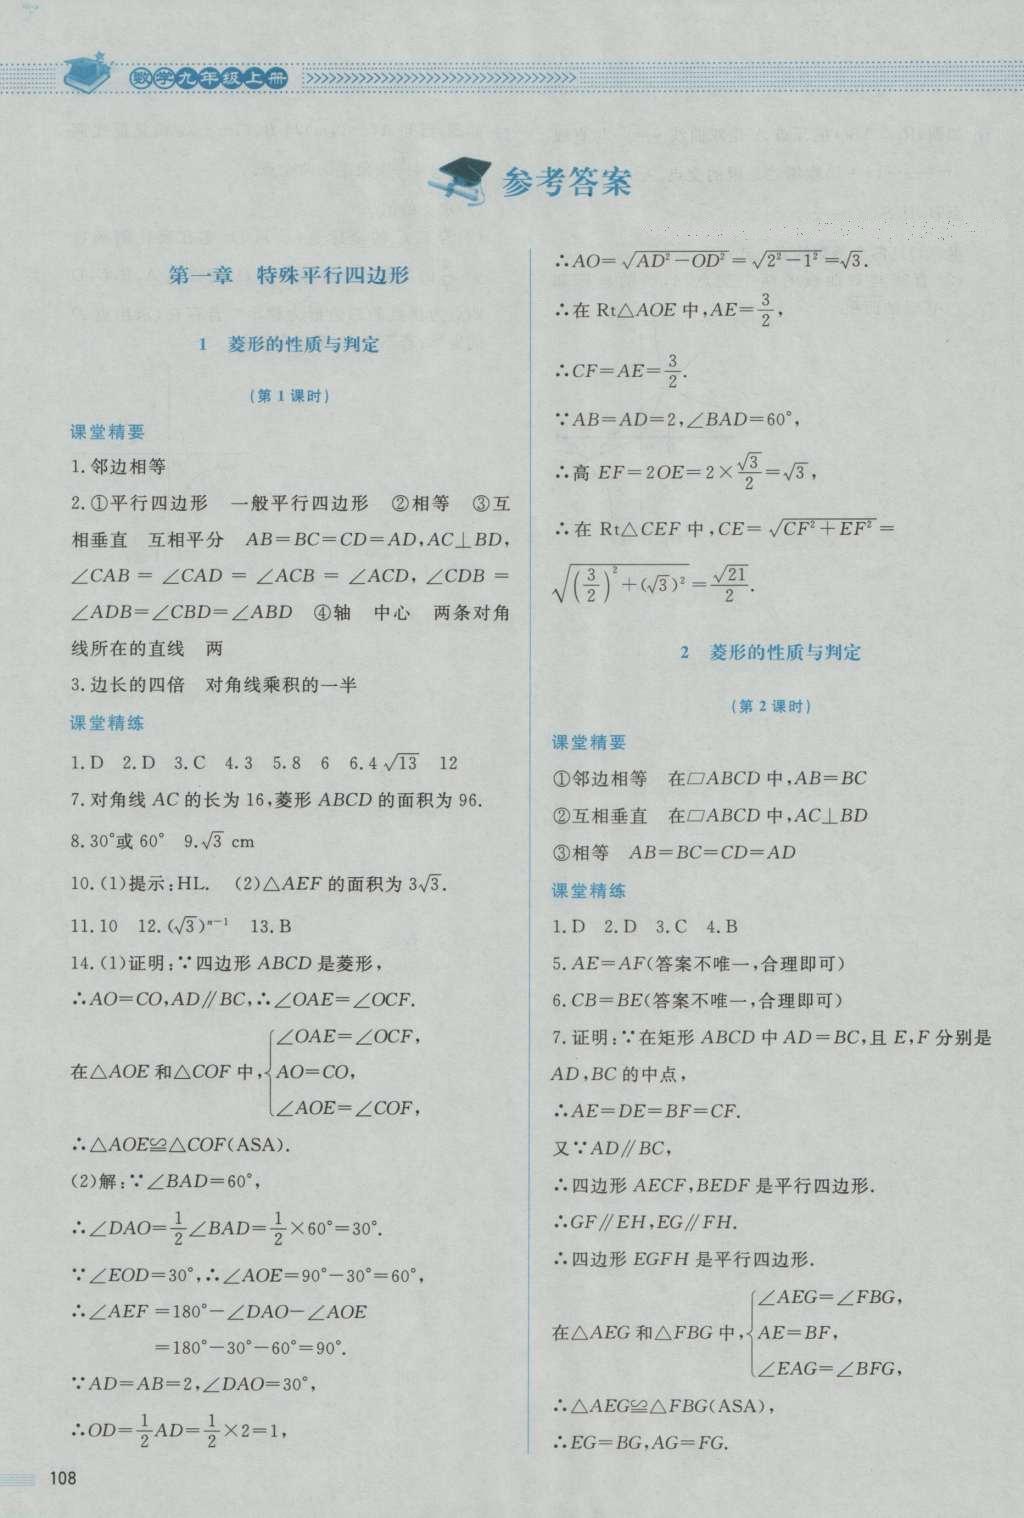 数学九年级上册
参考答案
第一章 特殊平行四边形
1 菱形的性质与判定
(第1课时)
课堂精要
1.邻边相等
2.①平行四边形 一般平行四边形 ②相等 ③互
相垂直 互相平分 AB=BC=CD=AD,AC⊥BD,
∠CAB=∠CAD=∠ACB=∠ACD,∠CDB=
∠ADB=∠CBD=∠ABD ④轴 中心 两条对角
线所在的直线 两
3.边长的四倍 对角线乘积的一半
课堂精练
1.D 2.D 3.C 4.3 5.8 6 6.4√13 12
7.对角线 AC 的长为 16,菱形 ABCD 的面积为 96.
8.30°或 60° 9.√3 cm
10.(1)提示:HL. (2)△AEF 的面积为 3√3.
11.10 12.(√3)ⁿ⁻¹ 13.B
14.(1)证明:∵四边形 ABCD 是菱形,
∴AO=CO,AD∥BC,∴∠OAE=∠OCF.
∠OAE=∠OCF,
在△AOE 和△COF 中,{AO=CO,
∠AOE=∠COF,
∴△AOE≌△COF(ASA).
(2)解:∵∠BAD=60°,
∴∠DAO=1/2∠BAD=1/2×60°=30°.
∵∠EOD=30°,∴∠AOE=90°-30°=60°,
∴∠AEF=180°-∠DAO-∠AOE
=180°-30°-60°=90°.
∵AD=AB=2,∠DAO=30°,
∴OD=1/2AD=1/2×2=1,
∴AO=√(AD²-OD²)=√(2²-1²)=√3.
∴在 Rt△AOE 中,AE=3/2,
∴CF=AE=3/2.
∵AB=AD=2,∠BAD=60°,
∴高 EF=2OE=2×√3/2=√3,
∴在 Rt△CEF 中,CE=√(CF²+EF²)=
√((3/2)²+(√3)²)=√21/2.
2 菱形的性质与判定
(第2课时)
课堂精要
①邻边相等 在▱ABCD 中,AB=BC
②互相垂直 在▱ABCD 中,AC⊥BD
③相等 AB=BC=CD=AD
课堂精练
1.D 2.D 3.C 4.B
5.AE=AF(答案不唯一,合理即可)
6.CB=BE(答案不唯一,合理即可)
7.证明:∵在矩形 ABCD 中 AD=BC,且 E,F 分别是
AD,BC 的中点,
∴AE=DE=BF=CF.
又∵AD∥BC,
∴四边形 AECF,BEDF 是平行四边形.
∴GF∥EH,EG∥FH.
∴四边形 EGFH 是平行四边形.
∠AEG=∠FBG,
在△AEG 和△FBG 中,{AE=BF,
∠EAG=∠BFG,
∴△AEG≌△FBG(ASA),
∴EG=BG,AG=FG.
108